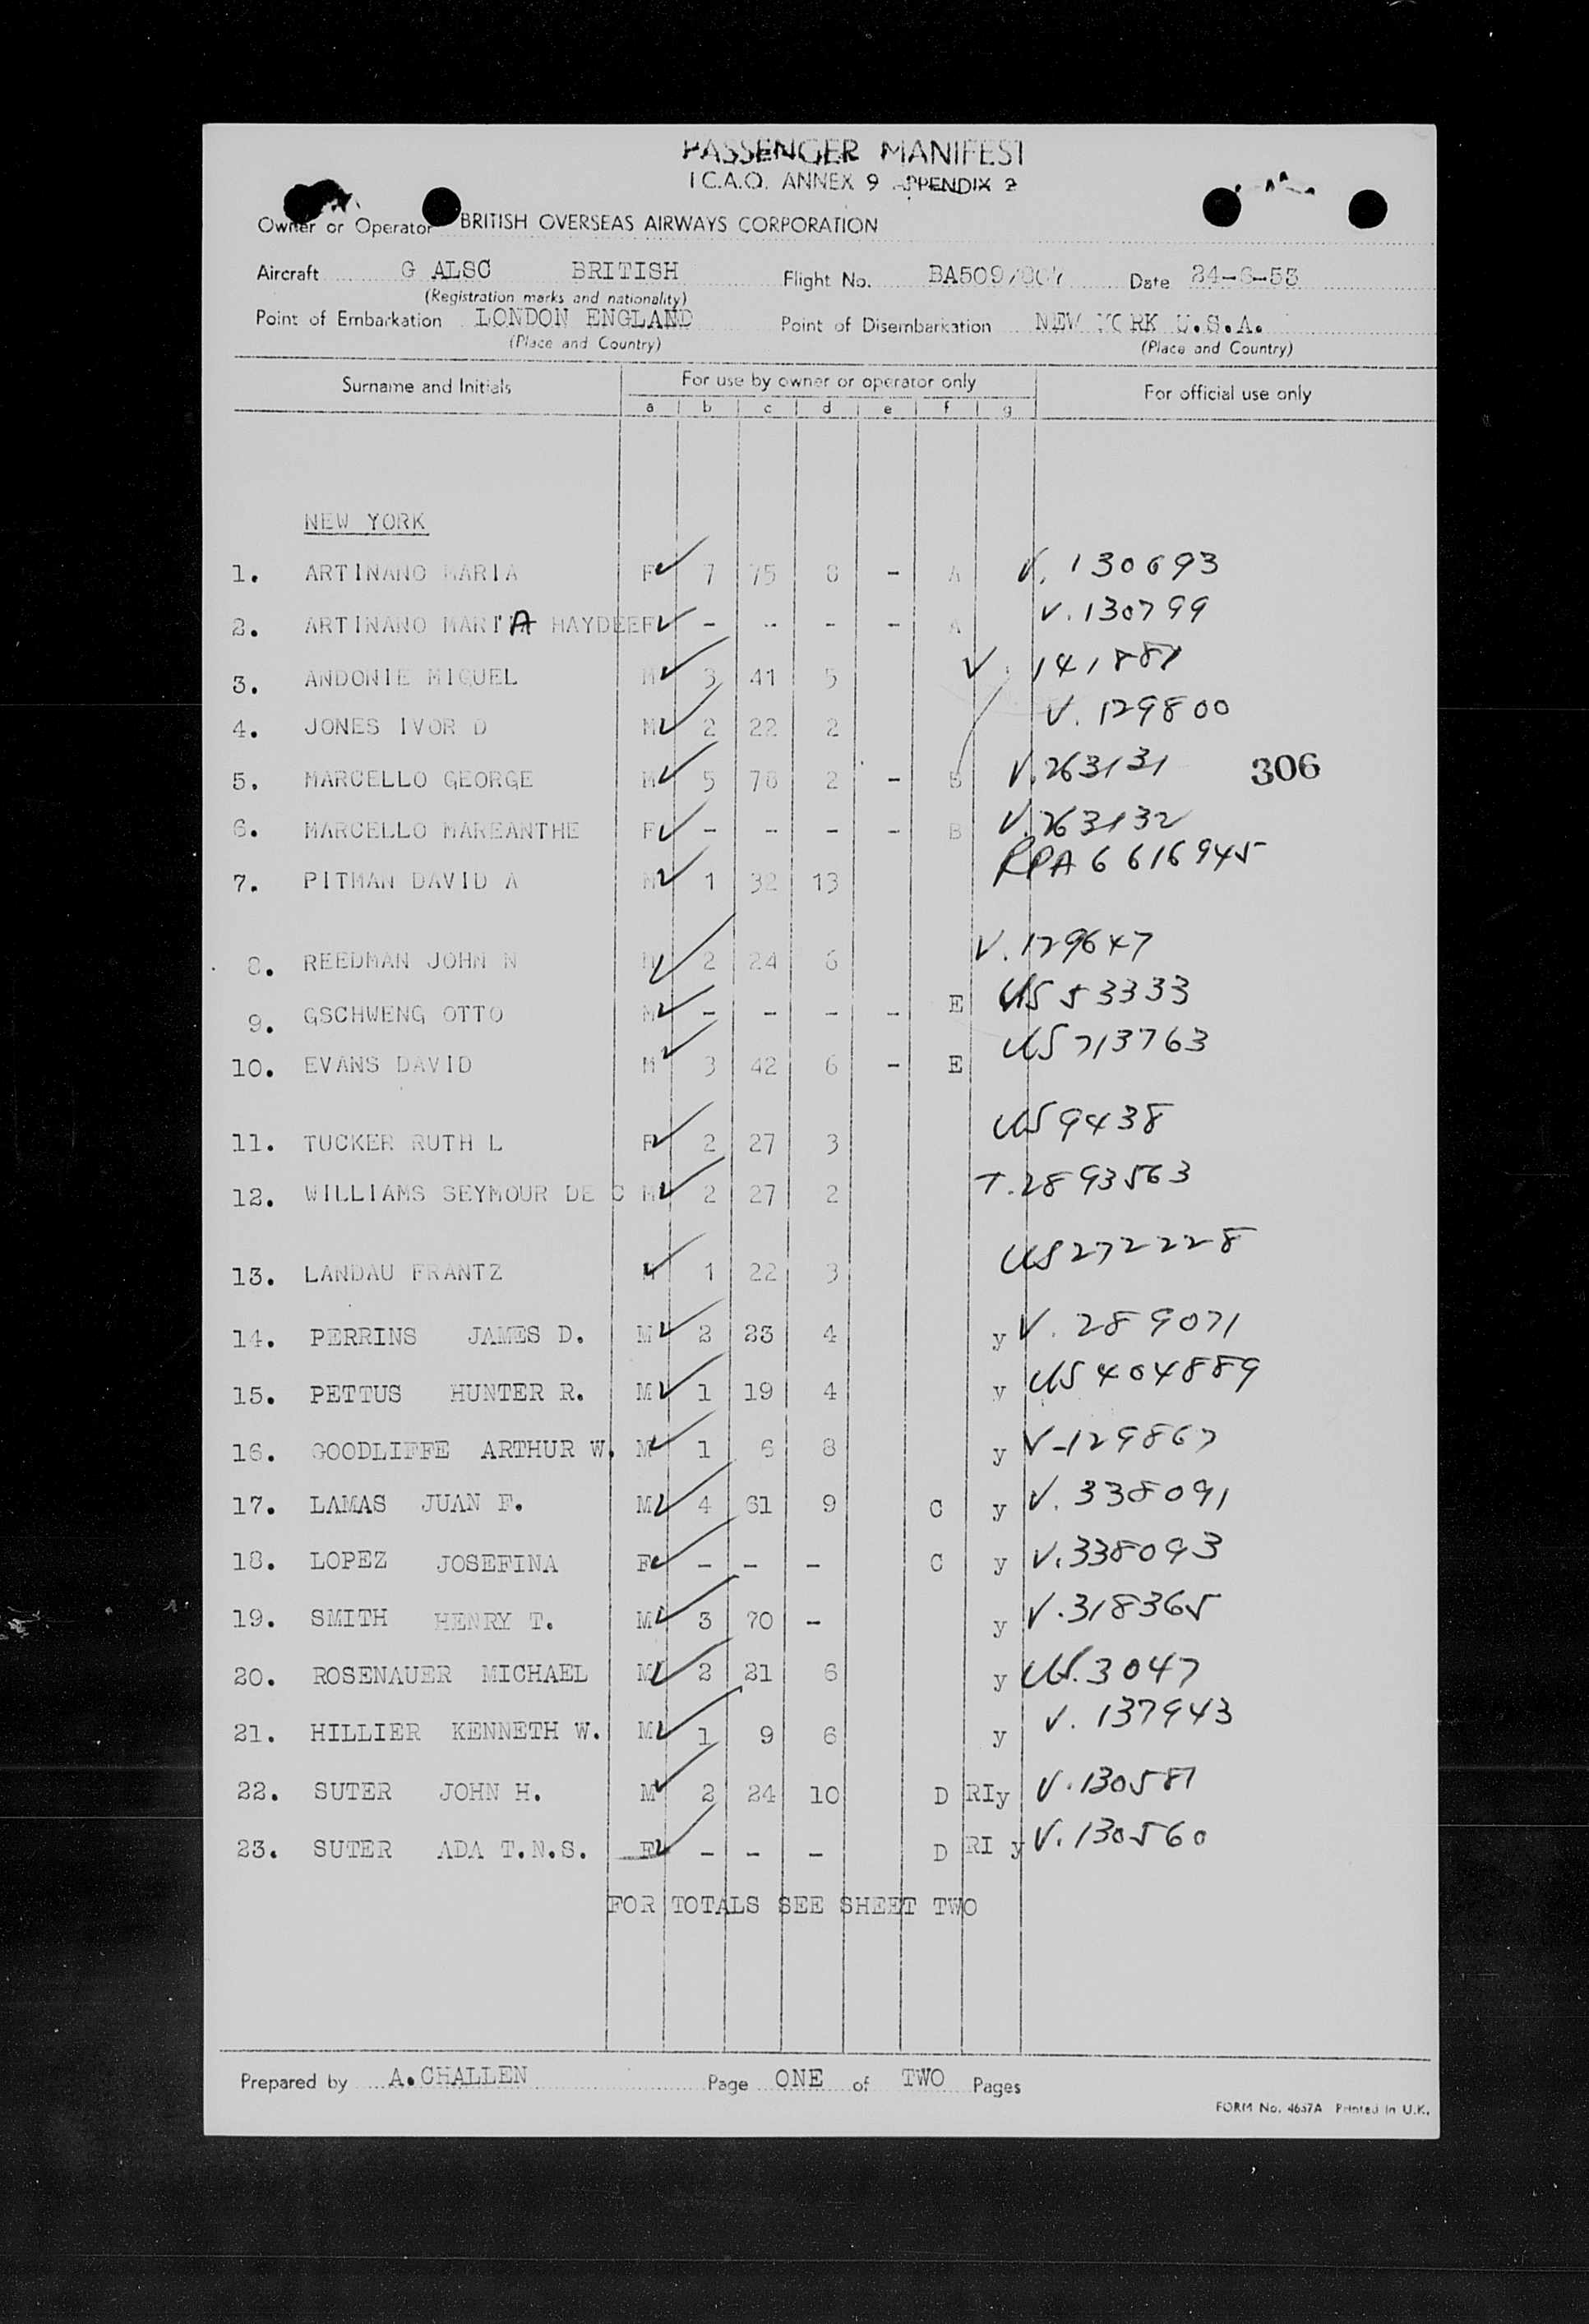 PASSENGER MANIFEST
I C.A.O. ANNEX 9 APPENDIX 2
Owner or Operator BRITISH OVERSEAS AIRWAYS CORPORATION
Aircraft G ALSC BRITISH Flight No. BA509/ Date
(Registration marks and nationality)
Point of Embarkation LONDON ENGLAND Point of Disembarkation NEW YORK U.S.A.
(Place and Country) (Place and Country)
Surname and Initials For use by owner or operator only For official use only
a b c d e f g
NEW YORK
1. ARTINANO MARIA F 7 75 8 - A V. 130693
2. ARTINANO MARIA HAYDEE F - - - - A V. 130799
3. ANDONIE MIGUEL M 3 41 5 V. 141887
4. JONES IVOR D M 2 22 2 V. 129800
5. MARCELLO GEORGE M 5 78 2 - B V. 263131 306
6. MARCELLO MAREANTHE F - - - - B V. 263132
7. PITMAN DAVID A M 1 32 13 RPA 6616945
8. REEDMAN JOHN N M 2 24 6 V. 129647
9. GSCHWENG OTTO M - - - - E US 53333
10. EVANS DAVID M 3 42 6 - E US 713763
11. TUCKER RUTH L F 2 27 3 US 9438
12. WILLIAMS SEYMOUR DE C M 2 27 2 T. 2893563
13. LANDAU FRANTZ M 1 22 3 US 272228
14. PERRINS JAMES D. M 2 23 4 y V. 289071
15. PETTUS HUNTER R. M 1 19 4 y US 404889
16. GOODLIFFE ARTHUR W. M 1 6 8 y V-129867
17. LAMAS JUAN F. M 4 61 9 C y V. 338091
18. LOPEZ JOSEFINA F - - - C y V. 338093
19. SMITH HENRY T. M 3 70 - y V. 318365
20. ROSENAUER MICHAEL M 2 21 6 y US. 3047
21. HILLIER KENNETH W. M 1 9 6 y V. 137943
22. SUTER JOHN H. M 2 24 10 D RIy V. 130581
23. SUTER ADA T.N.S. F - - - D RI y V. 130560
FOR TOTALS SEE SHEET TWO
Prepared by A.CHALLEN Page ONE of TWO Pages
FORM No. 4637A Printed in U.K.